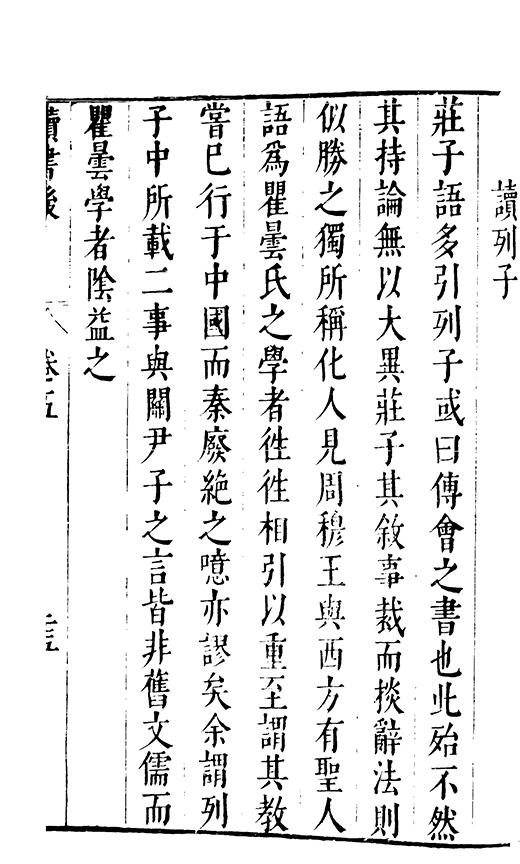 讀列子
莊子語多引列子或曰傳會之書也此殆不然
其持論無以大異莊子其敘事裁而掞辭法則
似勝之獨所稱化人見周穆王與西方有聖人
語爲瞿曇氏之學者徃徃相引以重至謂其教
嘗已行于中國而秦廢絶之噫亦謬矣余謂列
子中所載二事與關尹子之言皆非舊文儒而
瞿曇學者陰益之
讀書後
卷五